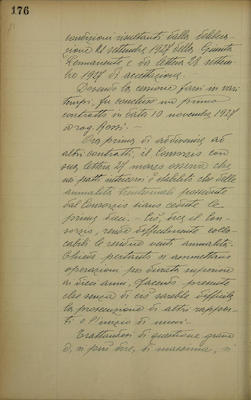 176
condizioni risultanti dalla delibera-
zione 21 settembre 1927 della Giunta
Permanente e da lettera 28 settem-
bro 1927 di accettazione.
Dovendo la cessione farsi in vari
tempi, fu concluso un primo
contratto in data 10 novembre 1927
a rog. Rossi. -
Ora prima di addivenire ad
altri contratti, il Consorzio con
sua lettera 27 marzo osserva che
nei patti intercorsi è stabilito che delle
annualità trentennali provenienti
dal Consorzio siano cedute le
prime dieci. - Ciò, dice il Con-
sorzio, rende difficilmente collo-
cabili le residue venti annualità.
Chiede pertanto si ammettano
operazioni per durata superiore
ai dieci anni, facendo presente
che senza di ciò sarebbe difficile
la prosecuzione di altri rappor-
ti e l'inizio di nuovi.
Trattandosi di questione grave
di, si può dire, di massima, si